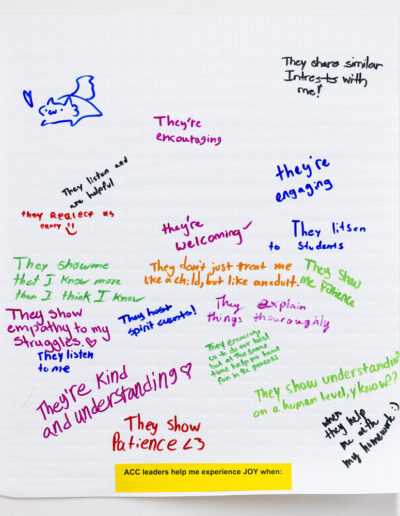 They share similar
Intrests with
me!
They're
encouraging
They listen and
are helpful
they're
engaging
they Realece us
early
they're
welcoming
They litsen
to students
They show me
that I know more
than I think I know
They don't just treat me
like a child, but like an adult.
They show
me Patience
They show
empathy to my
struggles.
They host
spirit events!
They explain
things thouroughly
They listen
to me
They encourage
us to do our best
but at the same
time help us have
fun in the process
They're kind
and understanding
They show understanding
on a human level, y'know??
They show
Patience <3
when
they help
me with
my homework :)
ACC leaders help me experience JOY when: